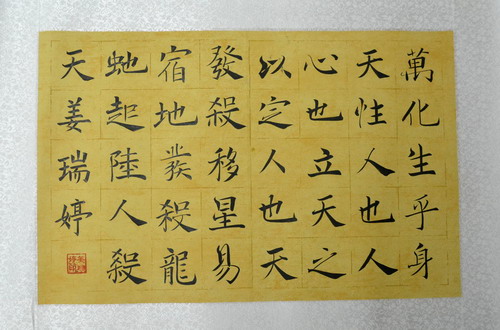 萬化生乎身
天性人也人
心也立天之
以定人也天
發殺移星易
宿地發殺龍
虵起陸人殺
天姜瑞婷